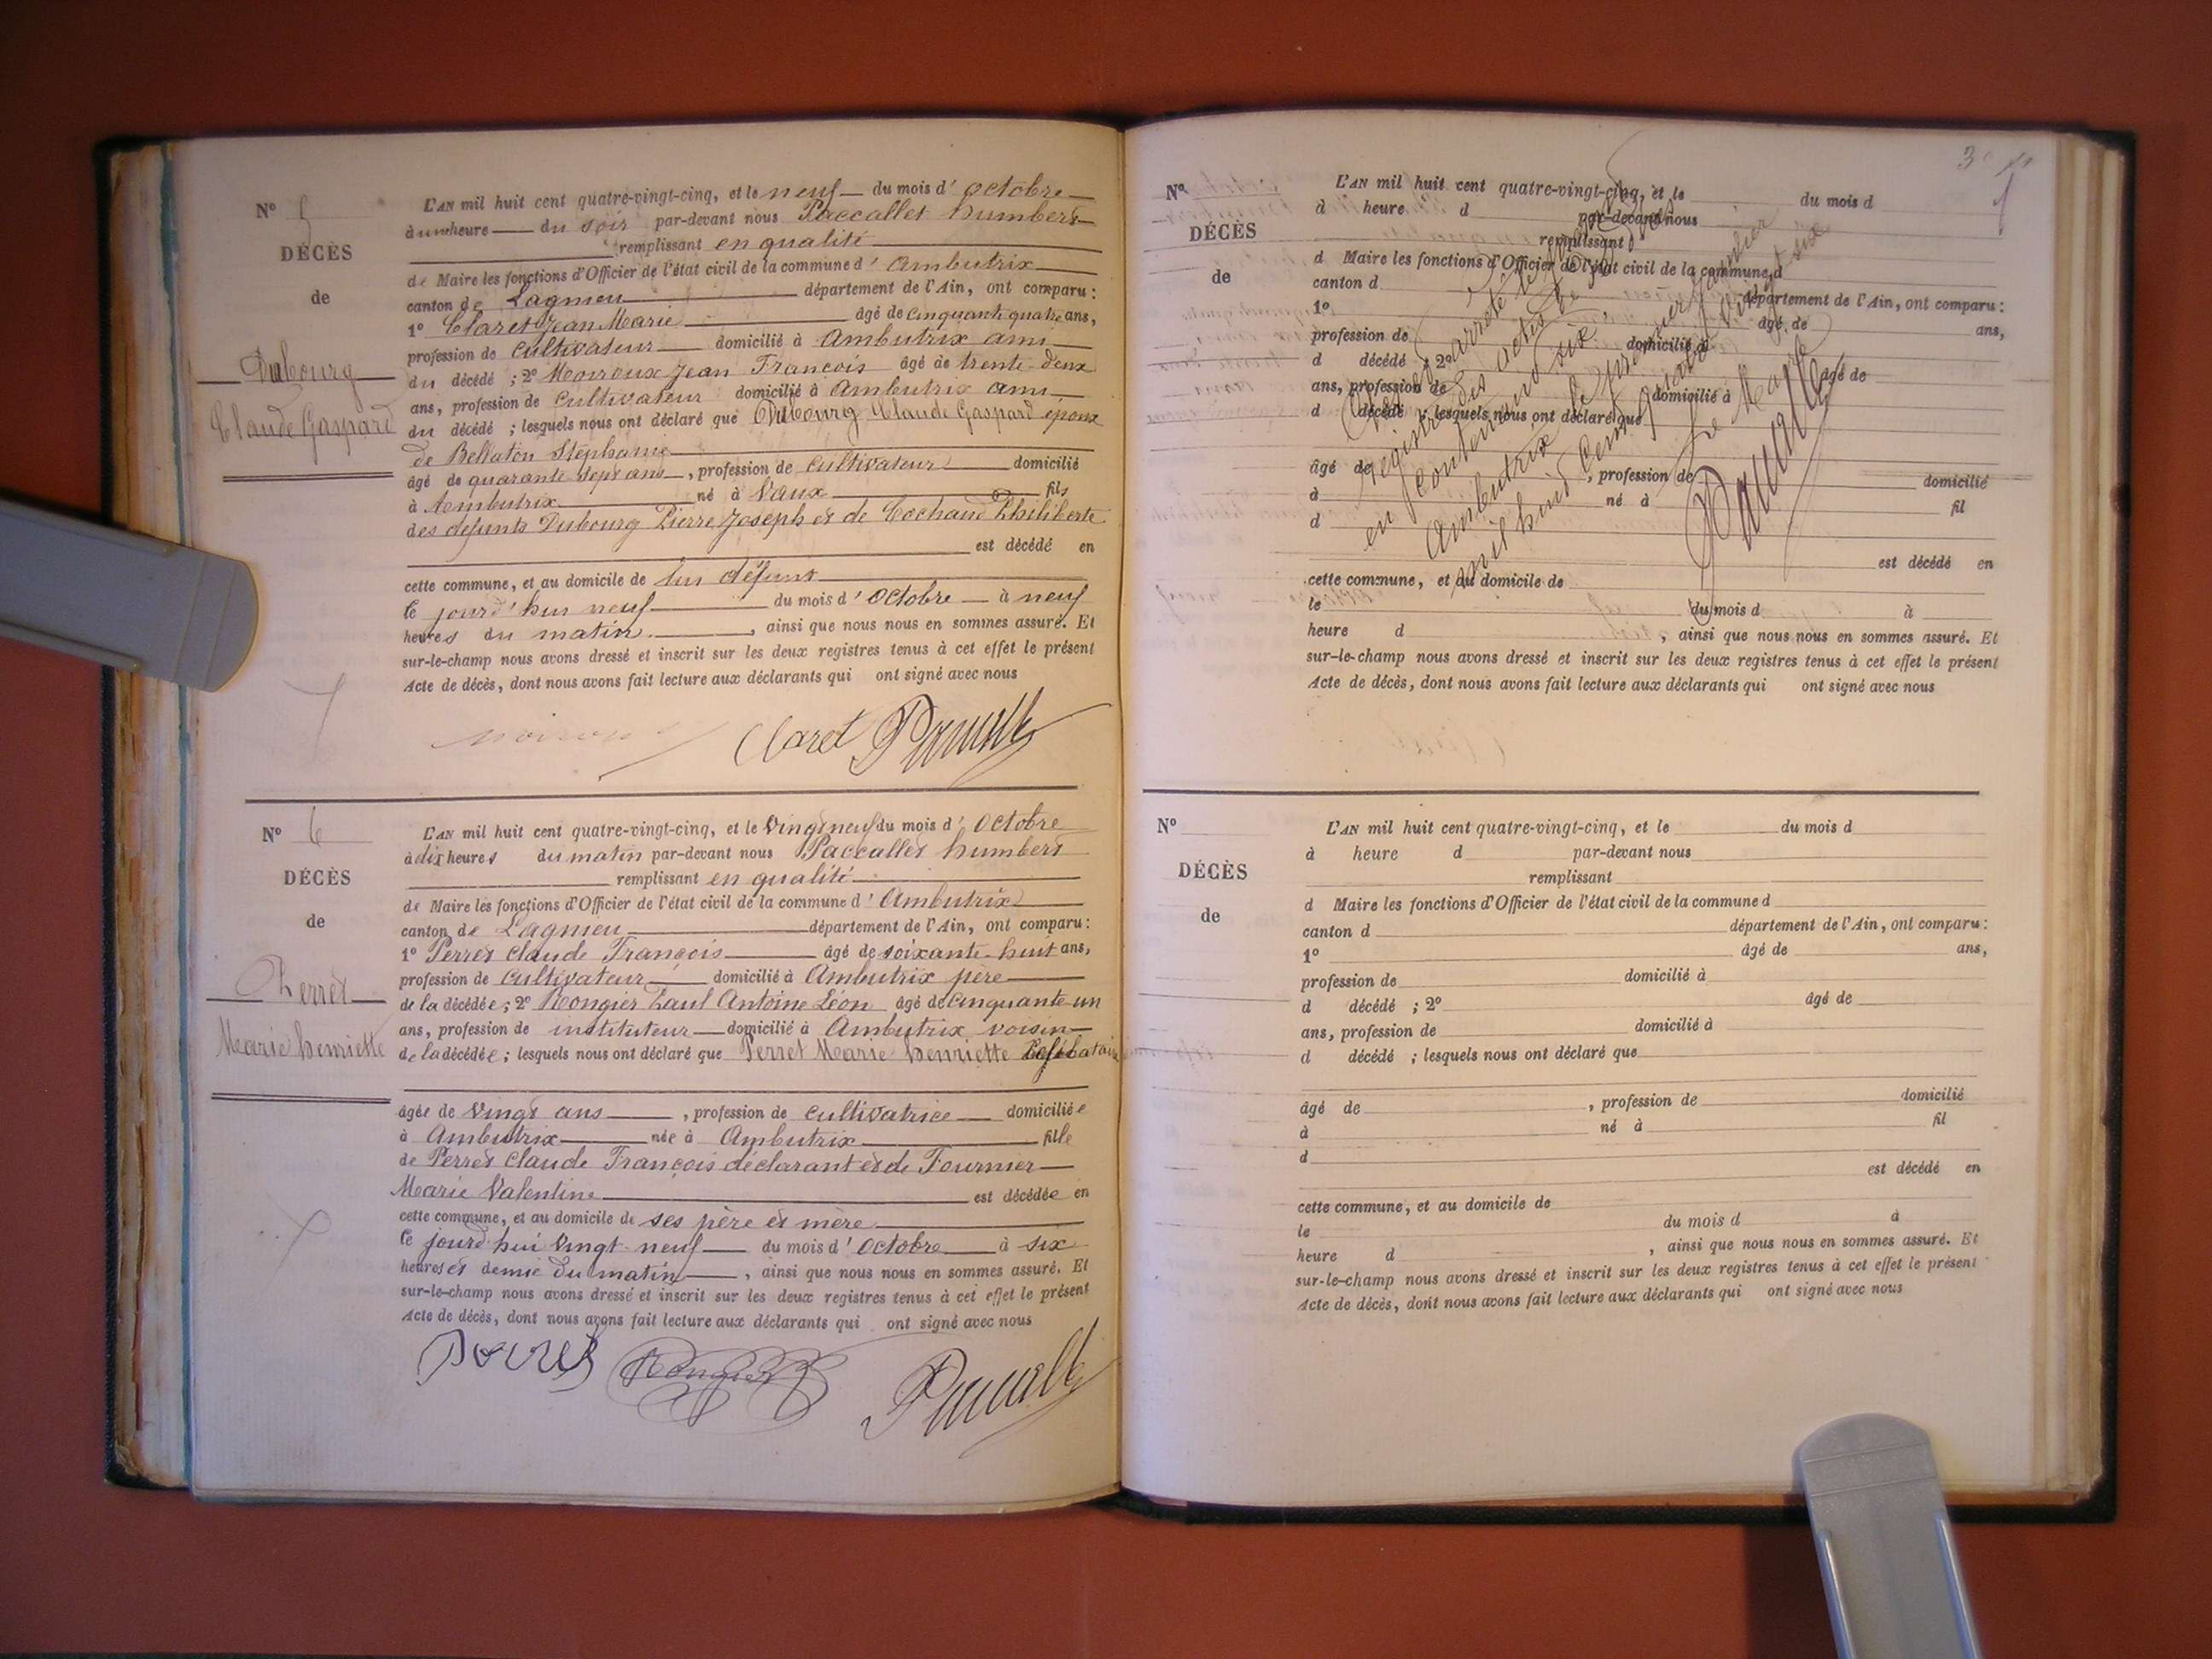 N° 5
DÉCÈS
de
Dubourg
Claude Gaspard
L'AN mil huit cent quatre-vingt-cinq, et le neuf du mois d' octobre
à une heure du soir par-devant nous Paccallet humbert
remplissant en qualité
de Maire les fonctions d'Officier de l'état civil de la commune d' Ambutrix
canton de Lagnieu département de l'Ain, ont comparu :
1° Claret Jean Marie âgé de cinquante quatre ans,
profession de cultivateur domicilié à Ambutrix ami
du décédé ; 2° Moiroux Jean François âgé de trente-deux
ans, profession de cultivateur domicilié à Ambutrix ami
du décédé ; lesquels nous ont déclaré que Dubourg Claude Gaspard époux
de Bellaton Stéphanie
âgé de quarante sept ans, profession de cultivateur domicilié
à Ambutrix né à Vaux fils
des défunts Dubourg Pierre Joseph et de Cochand Philiberte
est décédé en
cette commune, et au domicile de lui défunt
ce jourd'hui neuf du mois d' octobre à neuf
heures du matin, ainsi que nous nous en sommes assuré. Et
sur-le-champ nous avons dressé et inscrit sur les deux registres tenus à cet effet le présent
Acte de décès, dont nous avons fait lecture aux déclarants qui ont signé avec nous
Claret
N° 6
DÉCÈS
de
Perret
Marie henriette
L'AN mil huit cent quatre-vingt-cinq, et le vingt neuf du mois d' octobre
à dix heures du matin par-devant nous Paccallet humbert
remplissant en qualité
de Maire les fonctions d'Officier de l'état civil de la commune d' Ambutrix
canton de Lagnieu département de l'Ain, ont comparu :
1° Perret claude François âgé de soixante-huit ans,
profession de cultivateur domicilié à Ambutrix père
de la décédée ; 2° Rongier Paul Antoine Léon âgé de cinquante-un
ans, profession de instituteur domicilié à Ambutrix voisin
de la décédée ; lesquels nous ont déclaré que Perret Marie henriette Célibataire
âgée de vingt ans, profession de cultivatrice domiciliée
à Ambutrix née à Ambutrix fille
de Perret claude François déclarant et de Fournier
Marie Valentine est décédée en
cette commune, et au domicile de ses père et mère
ce jourd'hui vingt-neuf du mois d' octobre à six
heures et demie du matin, ainsi que nous nous en sommes assuré. Et
sur-le-champ nous avons dressé et inscrit sur les deux registres tenus à cet effet le présent
Acte de décès, dont nous avons fait lecture aux déclarants qui ont signé avec nous
Perret Rongier
N°
DÉCÈS
de
L'AN mil huit cent quatre-vingt-cinq, et le du mois d
à heure d par-devant nous
remplissant
d Maire les fonctions d'Officier de l'état civil de la commune d
canton d département de l'Ain, ont comparu :
1° âgé de ans,
profession de domicilié à
d décédé ; 2° âgé de
ans, profession de domicilié à
d décédé ; lesquels nous ont déclaré que
âgé de , profession de domicilié
à né à fil
d
est décédé en
cette commune, et au domicile de
le du mois d à
heure d , ainsi que nous nous en sommes assuré. Et
sur-le-champ nous avons dressé et inscrit sur les deux registres tenus à cet effet le présent
Acte de décès, dont nous avons fait lecture aux déclarants qui ont signé avec nous
arrêté le
registre des actes de
en contenant six,
Ambutrix le premier Janvier
mil huit cent quatre vingt six
Le Maire
N°
DÉCÈS
de
L'AN mil huit cent quatre-vingt-cinq, et le du mois d
à heure d par-devant nous
remplissant
d Maire les fonctions d'Officier de l'état civil de la commune d
canton d département de l'Ain, ont comparu :
1° âgé de ans,
profession de domicilié à
d décédé ; 2° âgé de
ans, profession de domicilié à
d décédé ; lesquels nous ont déclaré que
âgé de , profession de domicilié
à né à fil
d
est décédé en
cette commune, et au domicile de
le du mois d à
heure d , ainsi que nous nous en sommes assuré. Et
sur-le-champ nous avons dressé et inscrit sur les deux registres tenus à cet effet le présent
Acte de décès, dont nous avons fait lecture aux déclarants qui ont signé avec nous